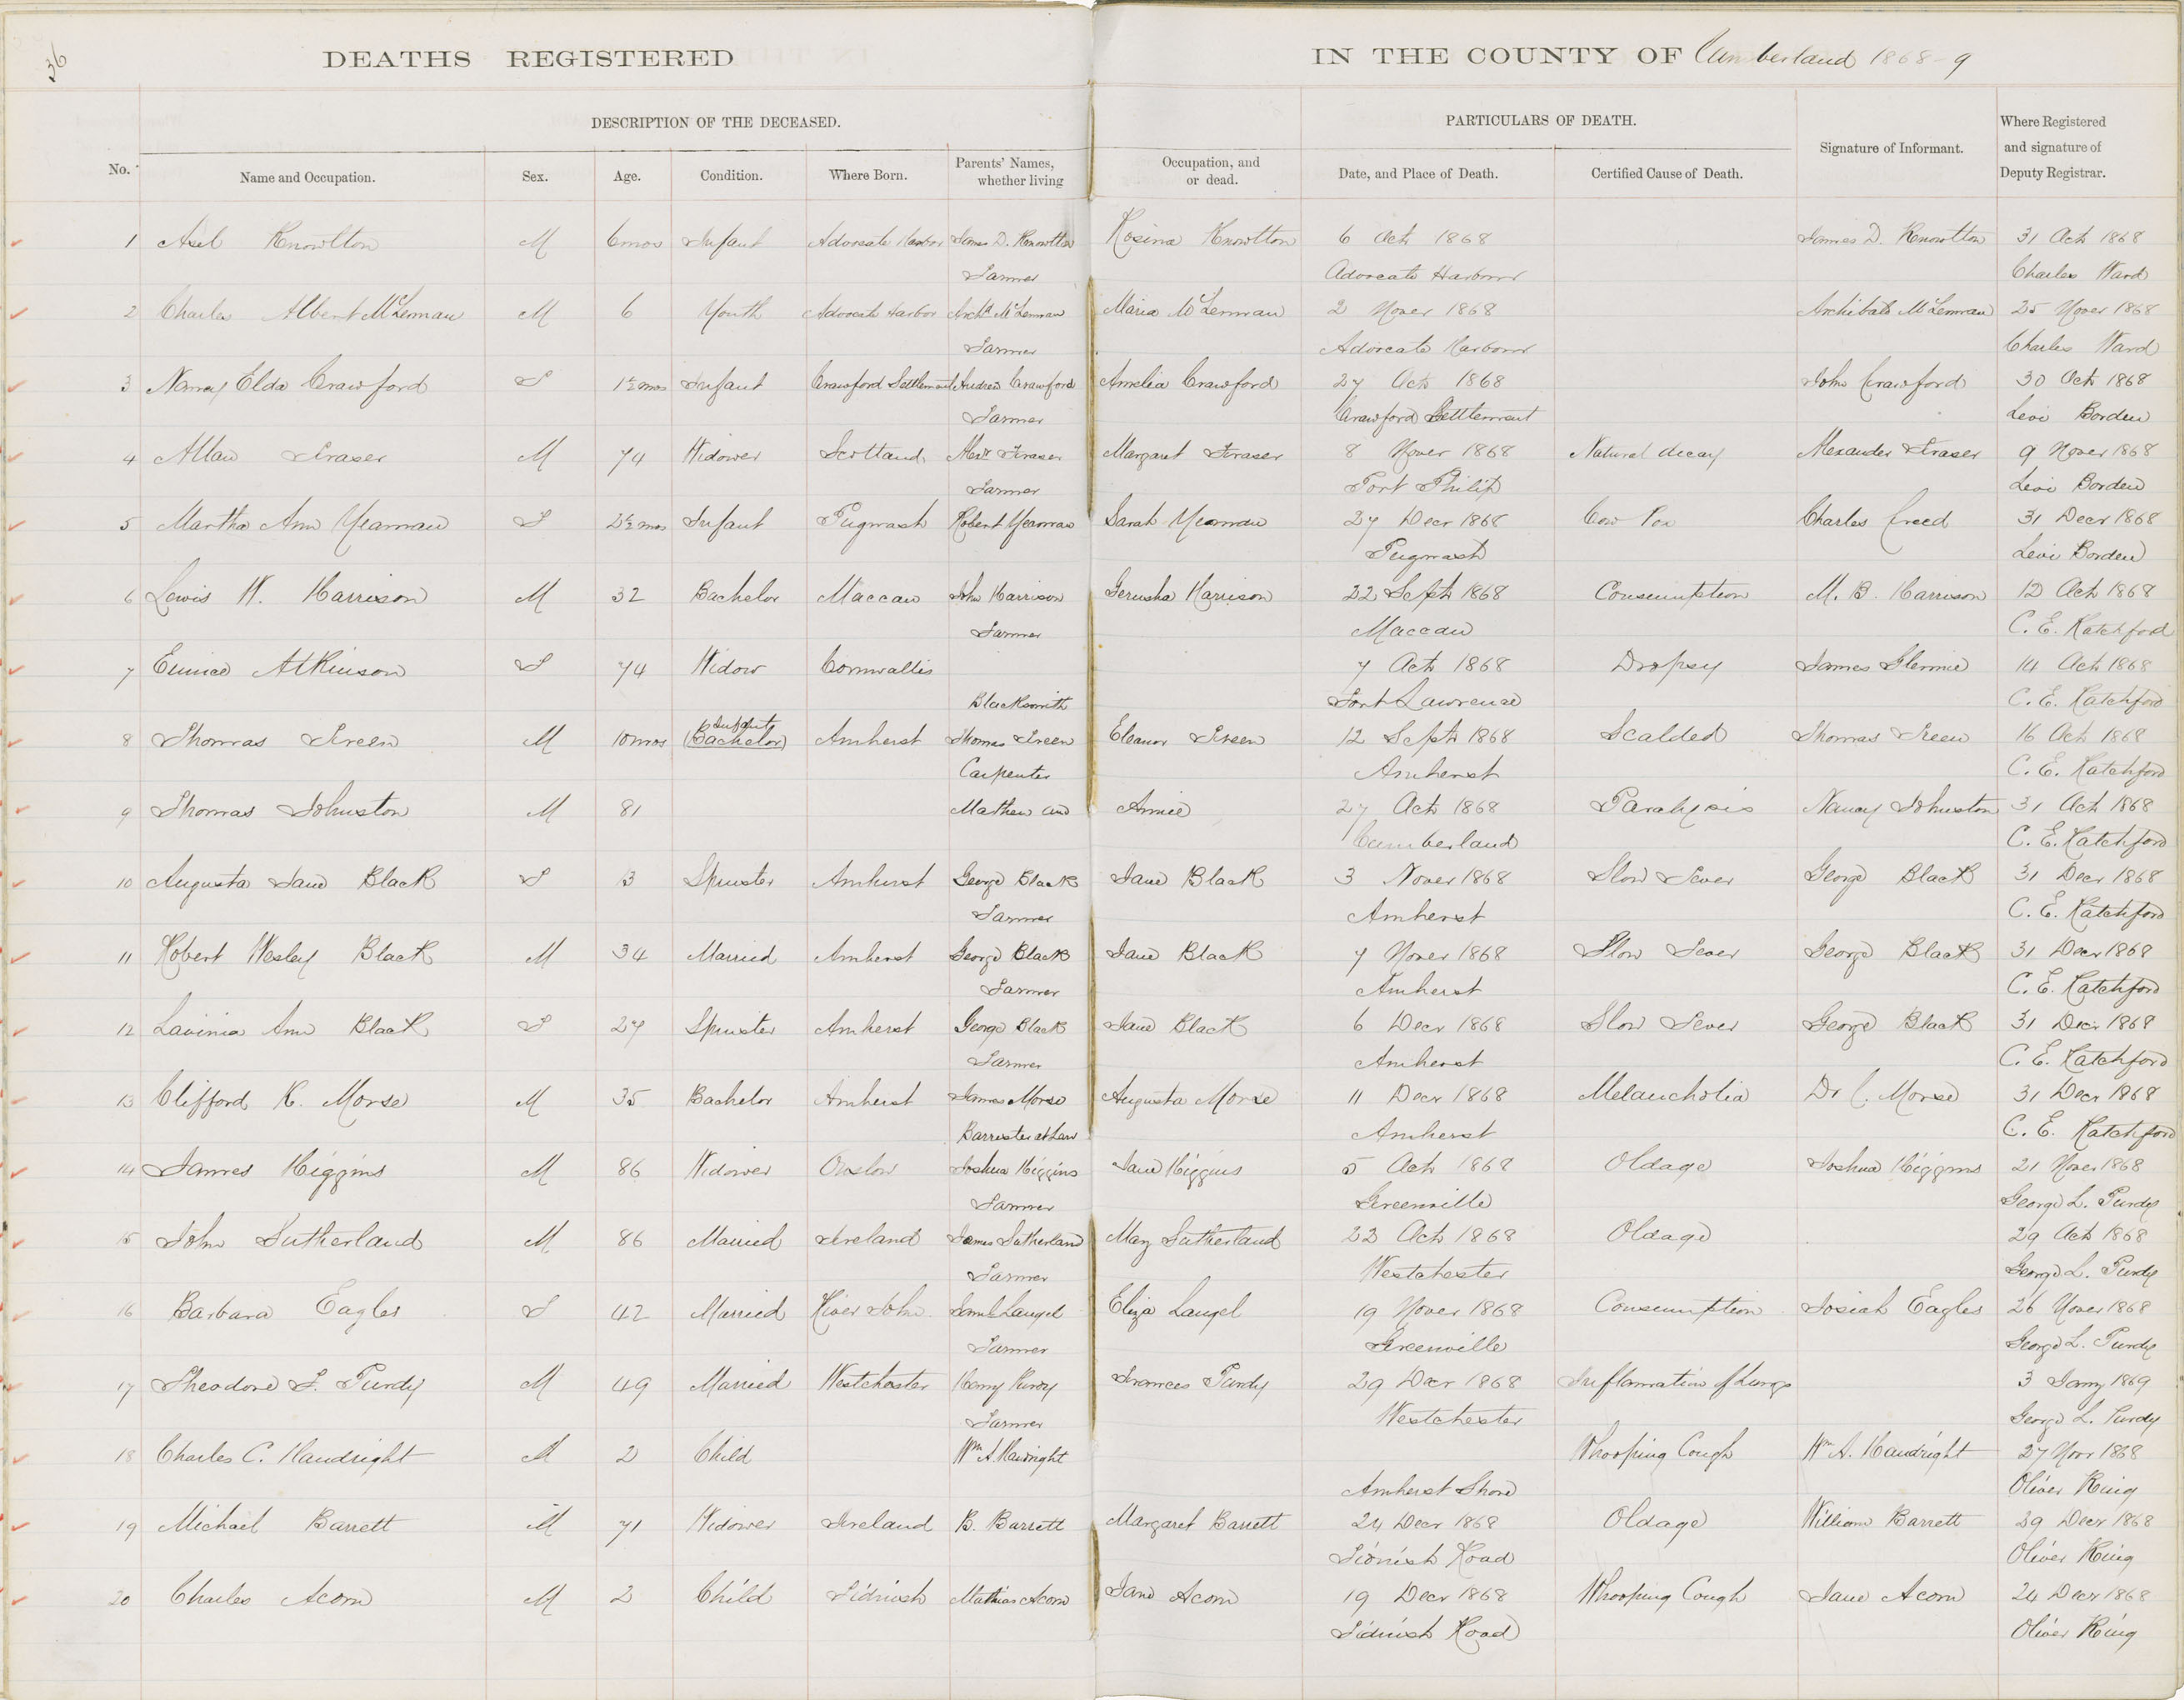 36
DEATHS REGISTERED IN THE COUNTY OF Cumberland 1868-9
DESCRIPTION OF THE DECEASED. PARTICULARS OF DEATH. Where Registered and signature of Deputy Registrar.
No. Name and Occupation. Sex. Age. Condition. Where Born. Parents' Names, whether living Occupation, and or dead. Date, and Place of Death. Certified Cause of Death. Signature of Informant.
1 Asel Knowlton M 6 mos Infant Advocate Harbor James D. Knowlton Rosina Knowlton 6 Oct 1868 James D. Knowlton 31 Oct 1868
Farmer Advocate Harbour Charles Ward
2 Charles Albert McLennan M 6 Youth Advocate Harbor Archd McLennan Maria McLennan 2 Nover 1868 Archibald McLennan 25 Nover 1868
Farmer Advocate Harbour Charles Ward
3 Nancy Elda Crawford F 1½ mos Infant Crawford Settlement Andrew Crawford Amelia Crawford 27 Oct 1868 John Crawford 30 Oct 1868
Farmer Crawford Settlement Levi Borden
4 Allan Fraser M 74 Widower Scotland Alexr Fraser Margaret Fraser 8 Nover 1868 Natural decay Alexander Fraser 9 Nover 1868
Farmer Port Philip Levi Borden
5 Martha Ann Yeaman F 2½ mos Infant Pugwash Robert Yeaman Sarah Yeaman 27 Decr 1868 Cow Pox Charles Creed 31 Decr 1868
Pugwash Levi Borden
6 Lewis W. Harrison M 32 Bachelor Maccan John Harrison Gerusha Harrison 22 Sept 1868 Consumption M. B. Harrison 12 Oct 1868
Farmer Maccan C. E. Ratchford
7 Eunice Atkinson F 74 Widow Cornwallis 7 Oct 1868 Dropsy James Glennie 14 Oct 1868
Blacksmith Fort Lawrence C. E. Ratchford
Infant
8 Thomas Green M 10 mos (Bachelor) Amherst Thomas Green Eleanor Green 12 Sept 1868 Scalded Thomas Green 16 Oct 1868
Carpenter Amherst C. E. Ratchford
9 Thomas Johnston M 81 Mathew and Annie 27 Oct 1868 Paralysis Nancy Johnston 31 Oct 1868
Cumberland C. E. Ratchford
10 Augusta Jane Black F 13 Spinster Amherst George Black Jane Black 3 Nover 1868 Slow Fever George Black 31 Decr 1868
Farmer Amherst C. E. Ratchford
11 Robert Wesley Black M 34 Married Amherst George Black Jane Black 7 Nover 1868 Slow Fever George Black 31 Decr 1868
Farmer Amherst C. E. Ratchford
12 Lavinia Ann Black F 27 Spinster Amherst George Black Jane Black 6 Decr 1868 Slow Fever George Black 31 Decr 1868
Farmer Amherst C. E. Ratchford
13 Clifford R. Morse M 35 Bachelor Amherst James Morse Augusta Morse 11 Decr 1868 Melancholia Dr C. Morse 31 Decr 1868
Barrister at Law Amherst C. E. Ratchford
14 James Higgins M 86 Widower Onslow Joshua Higgins Jane Higgins 5 Oct 1868 Oldage Joshua Higgins 21 Nover 1868
Farmer Greenville George L. Purdy
15 John Sutherland M 86 Married Ireland James Sutherland Mary Sutherland 22 Oct 1868 Oldage 29 Oct 1868
Farmer Westchester George L. Purdy
16 Barbara Eagles F 42 Married River John Saml Langel Eliza Langel 19 Nover 1868 Consumption Josiah Eagles 26 Nover 1868
Farmer Greenville George L. Purdy
17 Theodore F. Purdy M 49 Married Westchester Henry Purdy Frances Purdy 29 Decr 1868 Inflamation of Lungs 3 Jany 1869
Farmer Westchester George L. Purdy
18 Charles C. Handright M 2 Child Wm A. Handright Whooping Cough Wm A. Handright 27 Novr 1868
Amherst Shore Oliver King
19 Michael Barrett M 71 Widower Ireland B. Barrett Margaret Barrett 24 Decr 1868 Oldage William Barrett 29 Decr 1868
Tidnish Road Oliver King
20 Charles Acorn M 2 Child Tidnish Mathias Acorn Jane Acorn 19 Decr 1868 Whooping Cough Jane Acorn 24 Decr 1868
Tidnish Road Oliver King